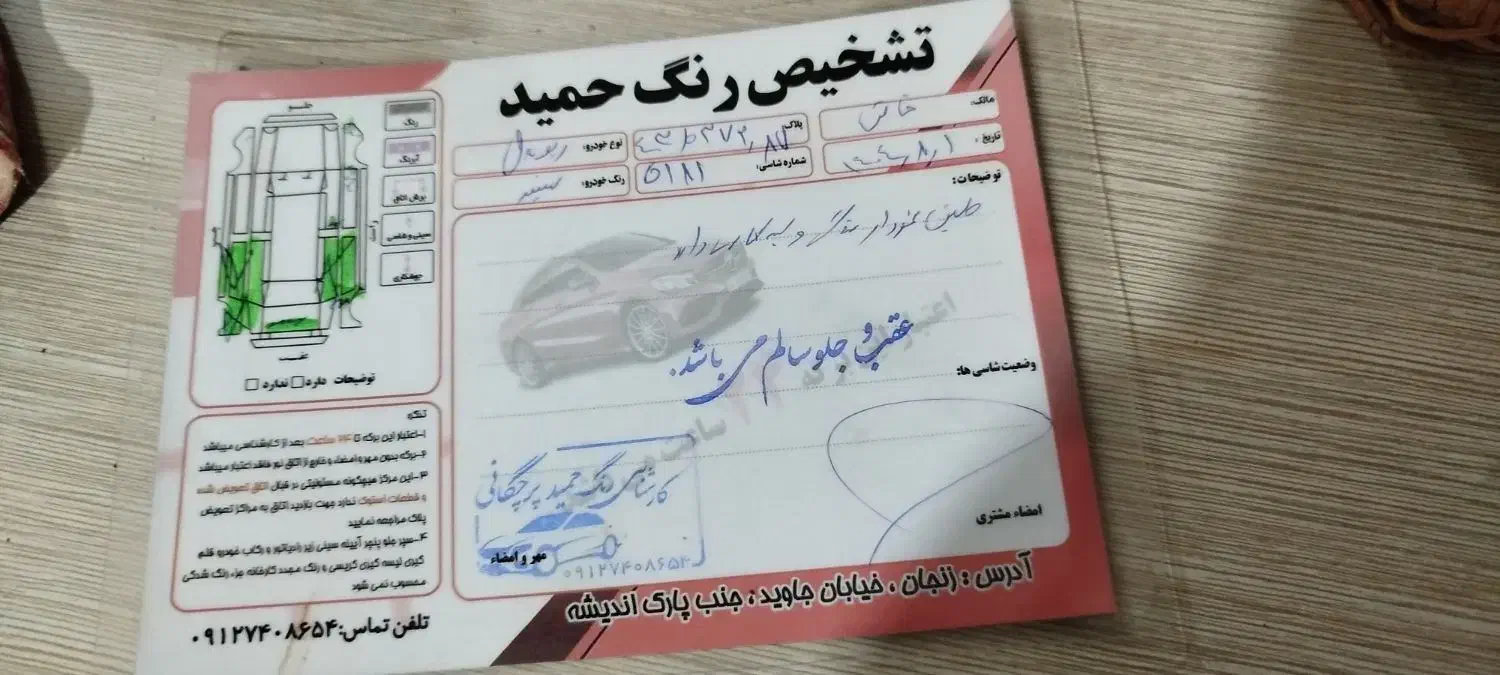 تشخیص رنگ حمید
مالک:
پلاک:
نوع خودرو:
تاریخ: ۱۴۰۴/۸/۱
شماره شاسی: ۵۱۸۱
رنگ خودرو: سفید
توضیحات:
طبق نمودار رنگ و لیسه کاری دارد
وضعیت شاسی ها:
عقب و جلو سالم می باشد.
امضاء مشتری
مهر و امضاء
کارشناسی رنگ حمید پرچگانی
۰۹۱۲۷۴۰۸۶۵۴
جلو
رنگ
آبرنگ
برش اتاق
سینی و شاسی
جوشکاری
راست
عقب
توضیحات دارد ندارد
تذکر
۱-اعتبار این برگه تا ۲۴ ساعت بعد از کارشناسی میباشد
۲-برگه بدون مهر و امضاء و خارج از اتاق نور فاقد اعتبار میباشد
۳-این مرکز هیچگونه مسئولیتی در قبال اتاق تعویض شده
و قطعات استوک ندارد جهت بازدید اتاق به مراکز تعویض
پلاک مراجعه نمایید
۴-سپر جلو پنجر آیینه سینی زیر رادیاتور و رکاب خودرو قلم
گیری لیسه گیری کریسی و رنگ مجدد کارخانه جزء رنگ شدگی
محسوب نمی شود
تلفن تماس:۰۹۱۲۷۴۰۸۶۵۴
آدرس : زنجان ، خیابان جاوید ، جنب پارک اندیشه